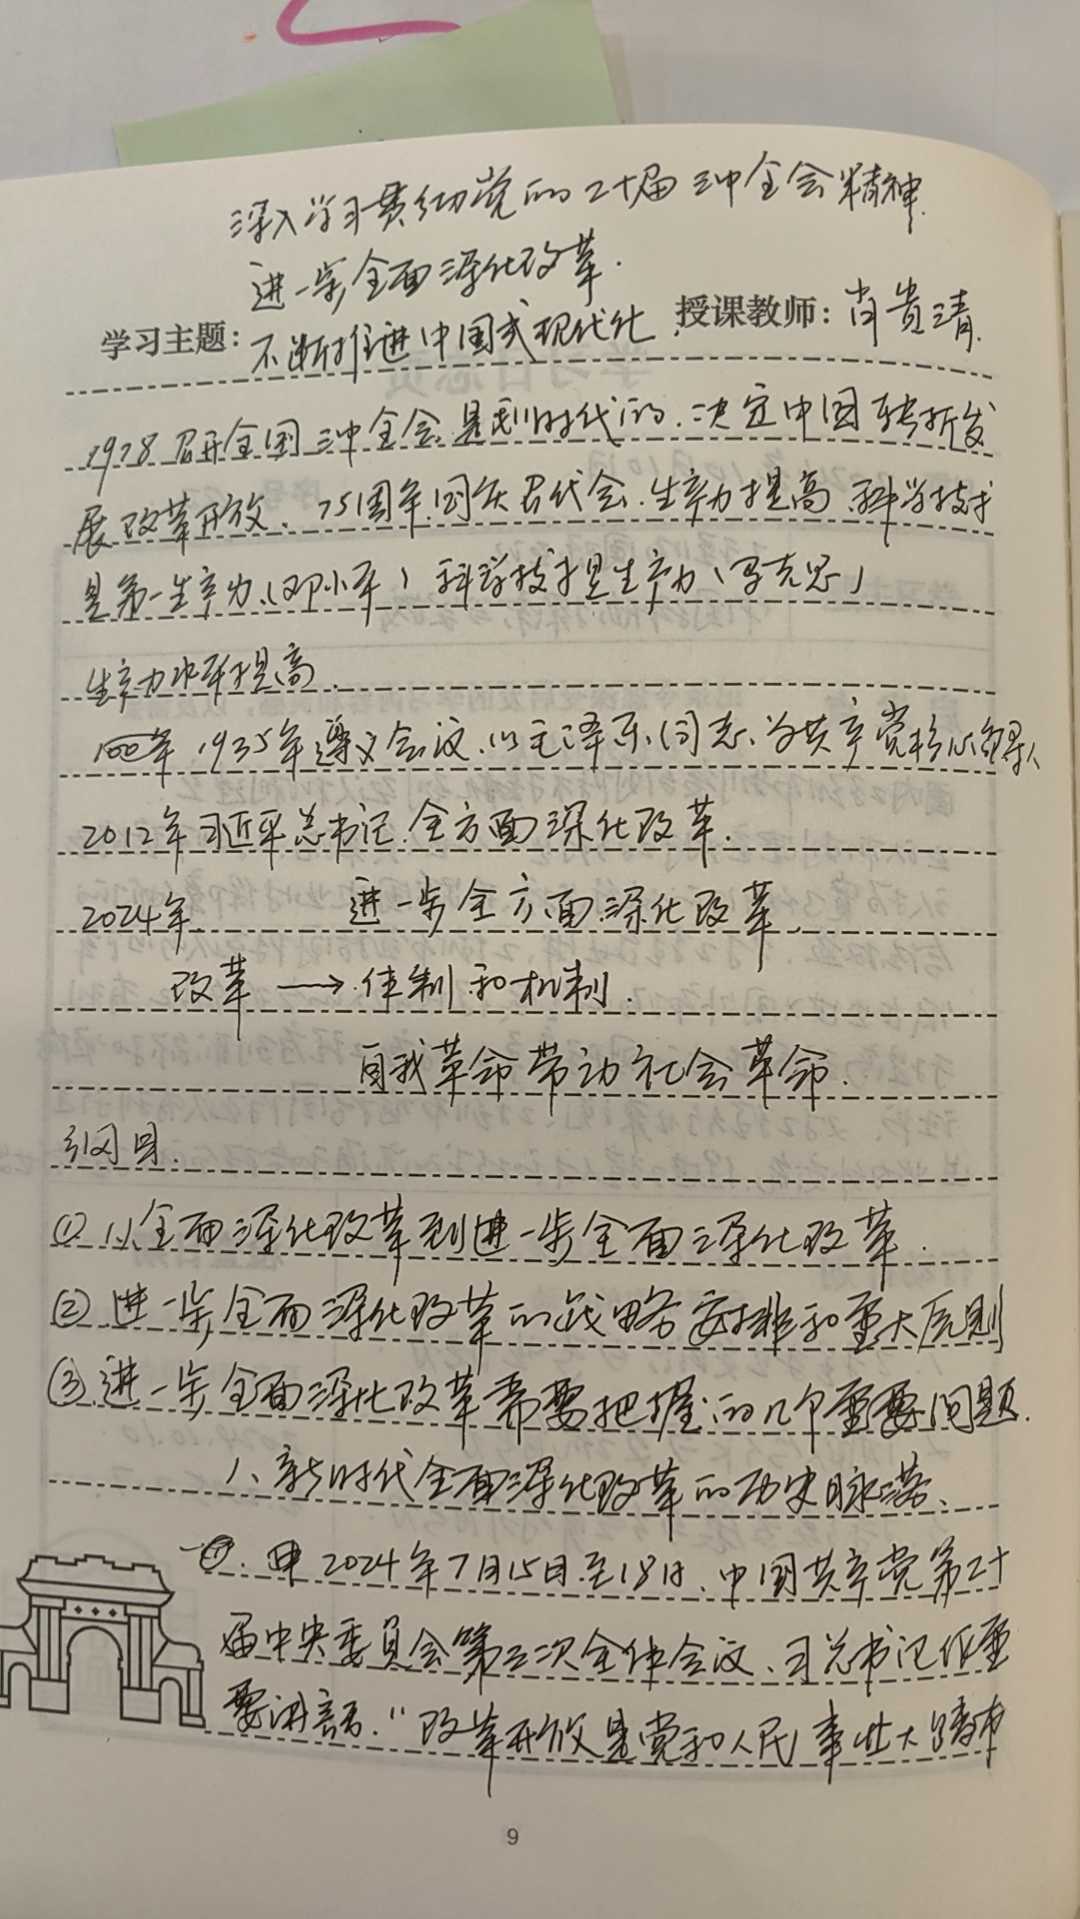 深入学习贯彻党的二十届三中全会精神.
进一步全面深化改革.
学习主题: 不断推进中国式现代化 授课教师: 肖贵清
1978召开全国三中全会.是划时代的.决定中国转折发
展改革开放、75周年国庆 代会.生产力提高 科学技术
是第一生产力(邓小平) 科学技术是生产力(马克思)
生产力水平提高.
1935年遵义会议.以毛泽东同志.为共产党核心领导人
2012年习近平总书记.全方面深化改革.
2024年. 进一步全方面深化改革.
改革 → 体制和机制.
自我革命带动社会革命.
纲目.
① 从全面深化改革到进一步全面深化改革.
② 进一步全面深化改革的战略安排和重大原则
③ 进一步全面深化改革需要把握的几个重要问题.
1、新时代全面深化改革的历史脉络、
2024年7月15日至18日、中国共产党第二十
届中央委员会第三次全体会议、习总书记作重
要讲话."改革开放是党和人民事业大踏步
9